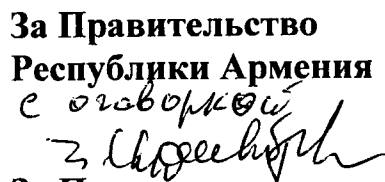 За Правительство
Республики Армения
с оговоркой